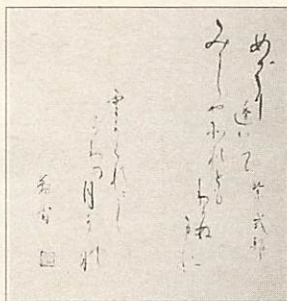 めぐり逢いて 紫式部
みしやそれとも
わかぬ
まに
雲かくれにし
よわの月かな